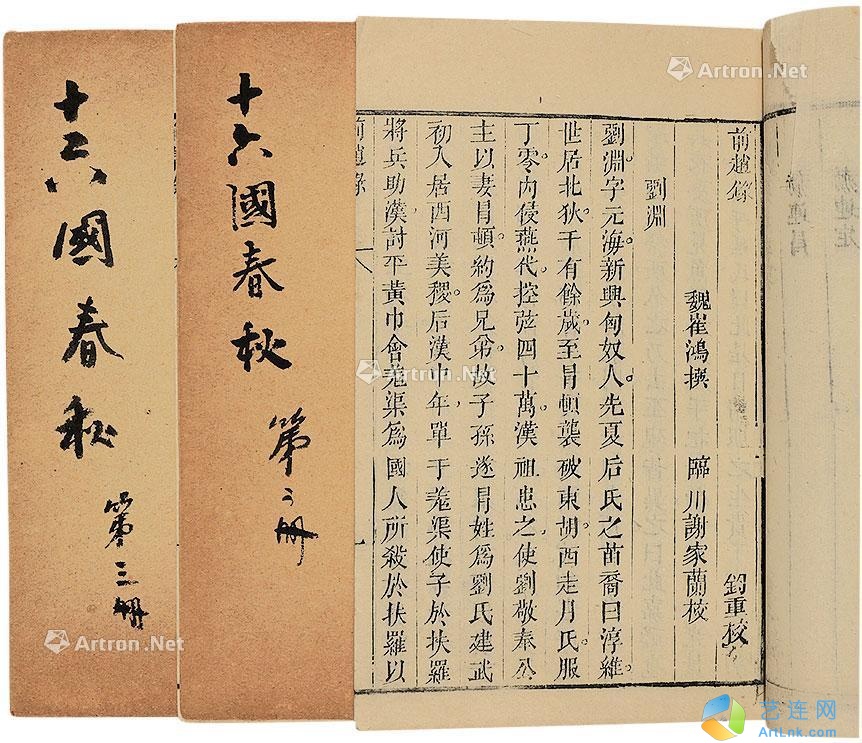 前趙錄
魏崔鴻撰 臨川謝家蘭校 鈞重校
劉淵
劉淵字元海新興匈奴人先夏后氏之苗裔曰淳維
世居北狄千有餘歲至冒頓襲破東胡西走月氏服
丁零內侵燕代控弦四十萬漢祖患之使劉敬奉公
主以妻冒頓約為兄弟故子孫遂冒姓為劉氏建武
初入居西河美稷后漢中年單于羌渠使子於扶羅
將兵助漢討平黃巾會羌渠為國人所殺於扶羅以
前趙錄
十六國春秋
第二冊
十六國春秋
第三冊
Artron.Net
Artron.Net
Artron.Net
Artron.Net
艺连网
ArtLnk.com